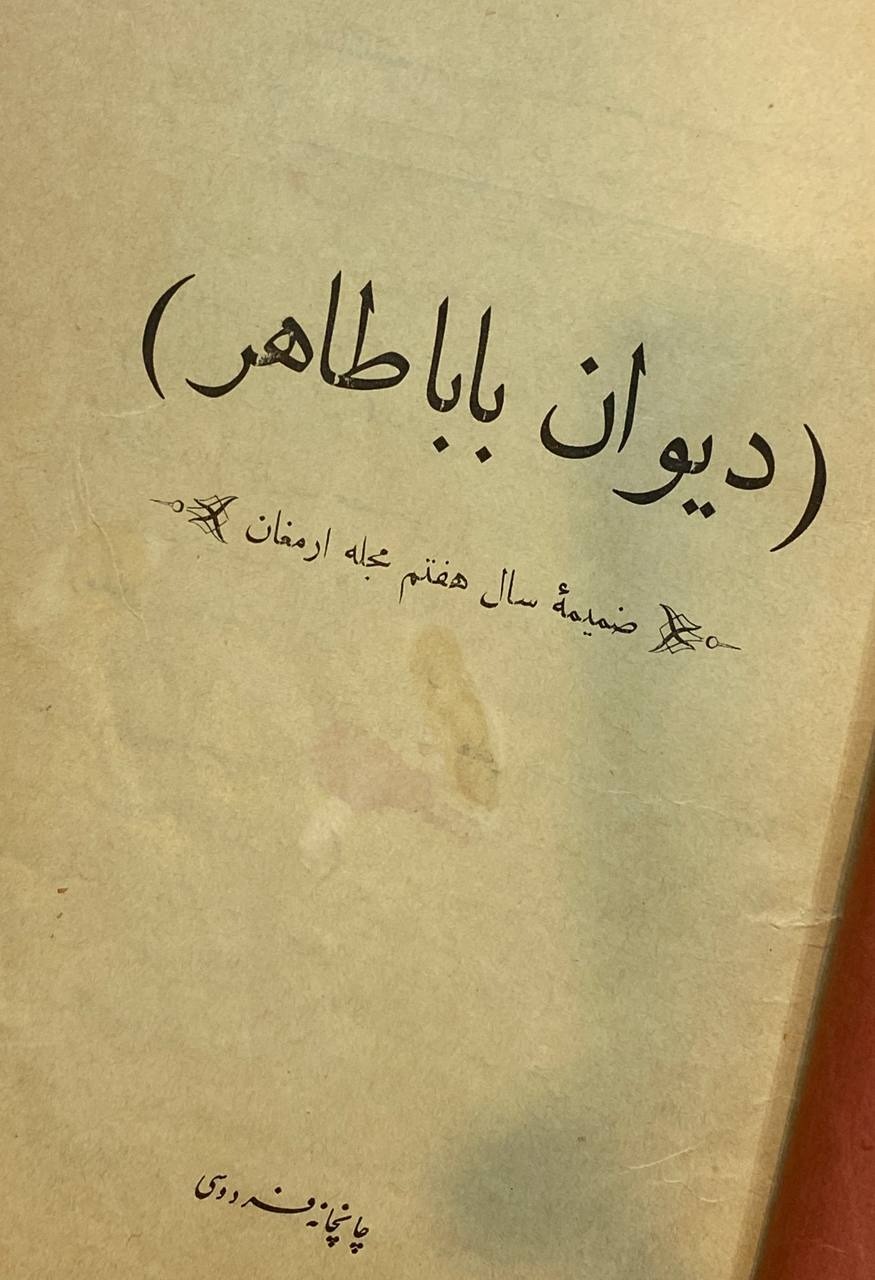 (دیوان باباطاهر)
ضمیمهٔ سال هفتم مجله ارمغان
چاپخانه فردوسی